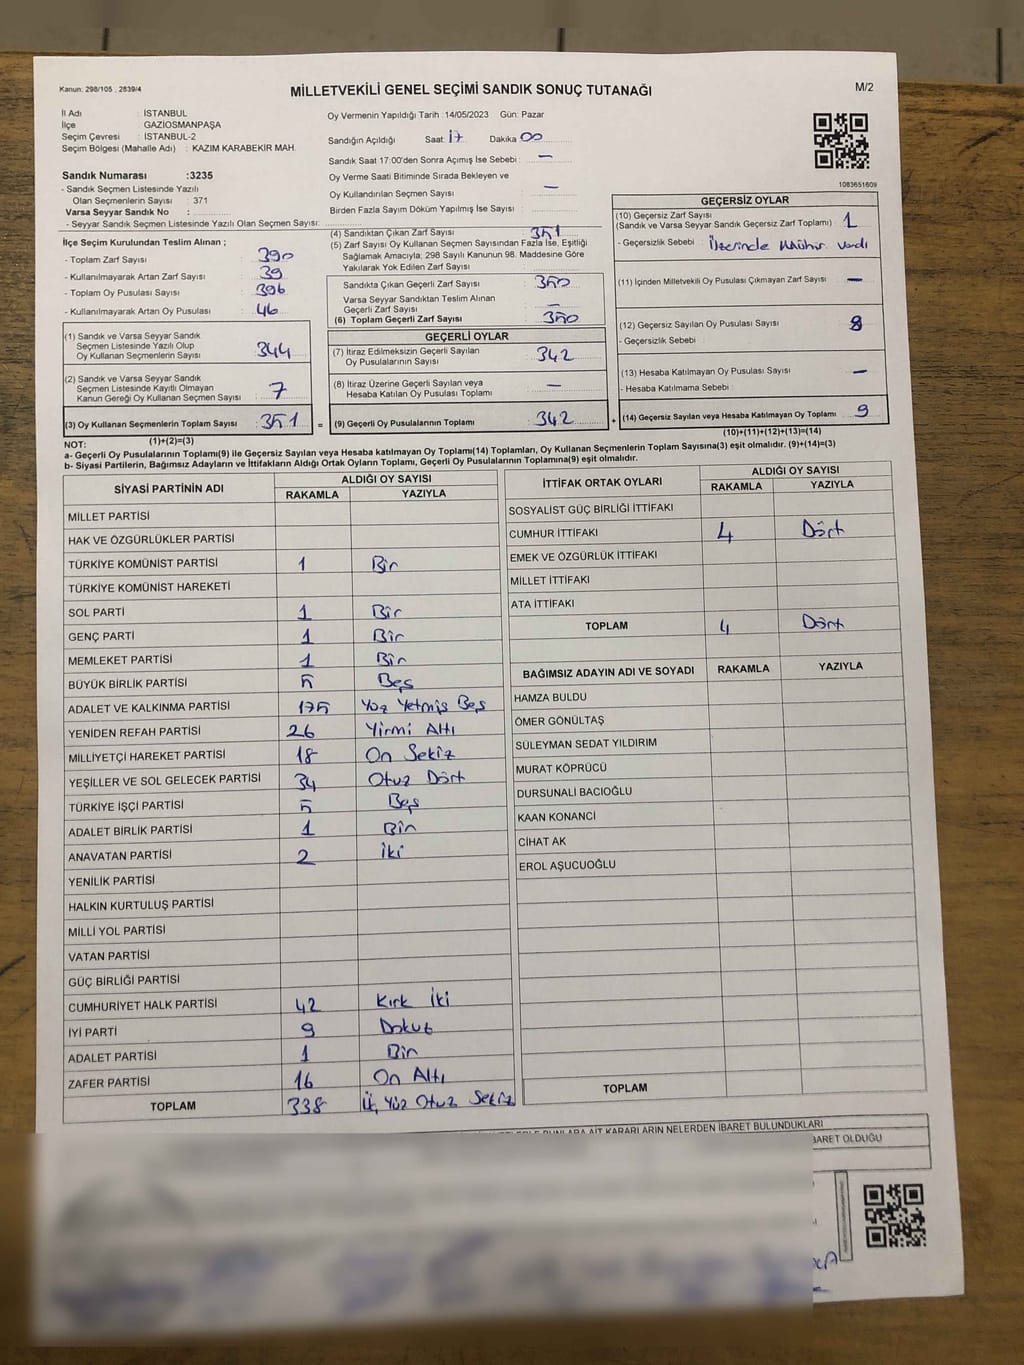 Kanun: 298/105 , 2839/4
MİLLETVEKİLİ GENEL SEÇİMİ SANDIK SONUÇ TUTANAĞI
M/2
İl Adı : İSTANBUL
İlçe : GAZİOSMANPAŞA
Seçim Çevresi : İSTANBUL-2
Seçim Bölgesi (Mahalle Adı) : KAZIM KARABEKİR MAH.
Sandık Numarası :3235
- Sandık Seçmen Listesinde Yazılı
Olan Seçmenlerin Sayısı : 371
Varsa Seyyar Sandık No :
- Seyyar Sandık Seçmen Listesinde Yazılı Olan Seçmen Sayısı:
Oy Vermenin Yapıldığı Tarih : 14/05/2023 Gün: Pazar
Sandığın Açıldığı Saat: 17 Dakika 00
Sandık Saat 17:00'den Sonra Açımış İse Sebebi : —
Oy Verme Saati Bitiminde Sırada Bekleyen ve
Oy Kullandırılan Seçmen Sayısı : —
Birden Fazla Sayım Döküm Yapılmış İse Sayısı :
1083651609
İlçe Seçim Kurulundan Teslim Alınan ;
- Toplam Zarf Sayısı : 390
- Kullanılmayarak Artan Zarf Sayısı : 39
- Toplam Oy Pusulası Sayısı : 396
- Kullanılmayarak Artan Oy Pusulası : 46
(1) Sandık ve Varsa Seyyar Sandık
Seçmen Listesinde Yazılı Olup
Oy Kullanan Seçmenlerin Sayısı : 344
(2) Sandık ve Varsa Seyyar Sandık
Seçmen Listesinde Kayıtlı Olmayan
Kanun Gereği Oy Kullanan Seçmen Sayısı : 7
(3) Oy Kullanan Seçmenlerin Toplam Sayısı : 351
(1)+(2)=(3)
(4) Sandıktan Çıkan Zarf Sayısı : 351
(5) Zarf Sayısı Oy Kullanan Seçmen Sayısından Fazla İse, Eşitliği
Sağlamak Amacıyla; 298 Sayılı Kanunun 98. Maddesine Göre
Yakılarak Yok Edilen Zarf Sayısı :
Sandıkta Çıkan Geçerli Zarf Sayısı : 350
Varsa Seyyar Sandıktan Teslim Alınan
Geçerli Zarf Sayısı : —
(6) Toplam Geçerli Zarf Sayısı : 350
GEÇERLİ OYLAR
(7) İtiraz Edilmeksizin Geçerli Sayılan
Oy Pusulalarının Sayısı : 342
(8) İtiraz Üzerine Geçerli Sayılan veya
Hesaba Katılan Oy Pusulası Toplamı : —
= (9) Geçerli Oy Pusulalarının Toplamı : 342
GEÇERSİZ OYLAR
(10) Geçersiz Zarf Sayısı
(Sandık ve Varsa Seyyar Sandık Geçersiz Zarf Toplamı) : 1
- Geçersizlik Sebebi : Üzerinde Mühür Vardı
(11) İçinden Milletvekili Oy Pusulası Çıkmayan Zarf Sayısı : —
(12) Geçersiz Sayılan Oy Pusulası Sayısı : 8
- Geçersizlik Sebebi :
(13) Hesaba Katılmayan Oy Pusulası Sayısı : —
- Hesaba Katılmama Sebebi :
+ (14) Geçersiz Sayılan veya Hesaba Katılmayan Oy Toplamı : 9
(10)+(11)+(12)+(13)=(14)
NOT:
a- Geçerli Oy Pusulalarının Toplamı(9) ile Geçersiz Sayılan veya Hesaba Katılmayan Oy Toplamı(14) Toplamları, Oy Kullanan Seçmenlerin Toplam Sayısına(3) eşit olmalıdır. (9)+(14)=(3)
b- Siyasi Partilerin, Bağımsız Adayların ve İttifakların Aldığı Ortak Oyların Toplamı, Geçerli Oy Pusulalarının Toplamına(9) eşit olmalıdır.
SİYASİ PARTİNİN ADI ALDIĞI OY SAYISI
RAKAMLA YAZIYLA
MİLLET PARTİSİ
HAK VE ÖZGÜRLÜKLER PARTİSİ
TÜRKİYE KOMÜNİST PARTİSİ 1 Bir
TÜRKİYE KOMÜNİST HAREKETİ
SOL PARTİ 1 Bir
GENÇ PARTİ 1 Bir
MEMLEKET PARTİSİ 1 Bir
BÜYÜK BİRLİK PARTİSİ 5 Beş
ADALET VE KALKINMA PARTİSİ 175 Yüz Yetmiş Beş
YENİDEN REFAH PARTİSİ 26 Yirmi Altı
MİLLİYETÇİ HAREKET PARTİSİ 18 On Sekiz
YEŞİLLER VE SOL GELECEK PARTİSİ 34 Otuz Dört
TÜRKİYE İŞÇİ PARTİSİ 5 Beş
ADALET BİRLİK PARTİSİ 1 Bir
ANAVATAN PARTİSİ 2 İki
YENİLİK PARTİSİ
HALKIN KURTULUŞ PARTİSİ
MİLLİ YOL PARTİSİ
VATAN PARTİSİ
GÜÇ BİRLİĞİ PARTİSİ
CUMHURİYET HALK PARTİSİ 42 Kırk İki
İYİ PARTİ 9 Dokuz
ADALET PARTİSİ 1 Bir
ZAFER PARTİSİ 16 On Altı
TOPLAM 338 Üç Yüz Otuz Sekiz
İTTİFAK ORTAK OYLARI ALDIĞI OY SAYISI
RAKAMLA YAZIYLA
SOSYALİST GÜÇ BİRLİĞİ İTTİFAKI
CUMHUR İTTİFAKI 4 Dört
EMEK VE ÖZGÜRLÜK İTTİFAKI
MİLLET İTTİFAKI
ATA İTTİFAKI
TOPLAM 4 Dört
BAĞIMSIZ ADAYIN ADI VE SOYADI RAKAMLA YAZIYLA
HAMZA BULDU
ÖMER GÖNÜLTAŞ
SÜLEYMAN SEDAT YILDIRIM
MURAT KÖPRÜCÜ
DURSUNALİ BACIOĞLU
KAAN KONANCİ
CİHAT AK
EROL AŞUCUOĞLU
TOPLAM
BUNLARA AİT KARARLARIN NELERDEN İBARET BULUNDUKLARI
İBARET OLDUĞU